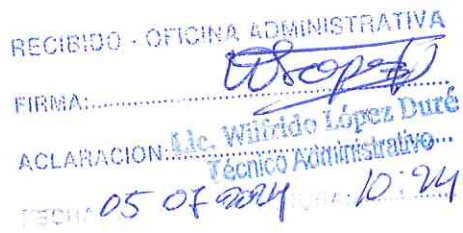 RECIBIDO - OFICINA ADMINISTRATIVA
FIRMA:
ACLARACION: Lic. Wilfrido López Duré
Técnico Administrativo
FECHA: 05 07 2024 HORA: 10:24